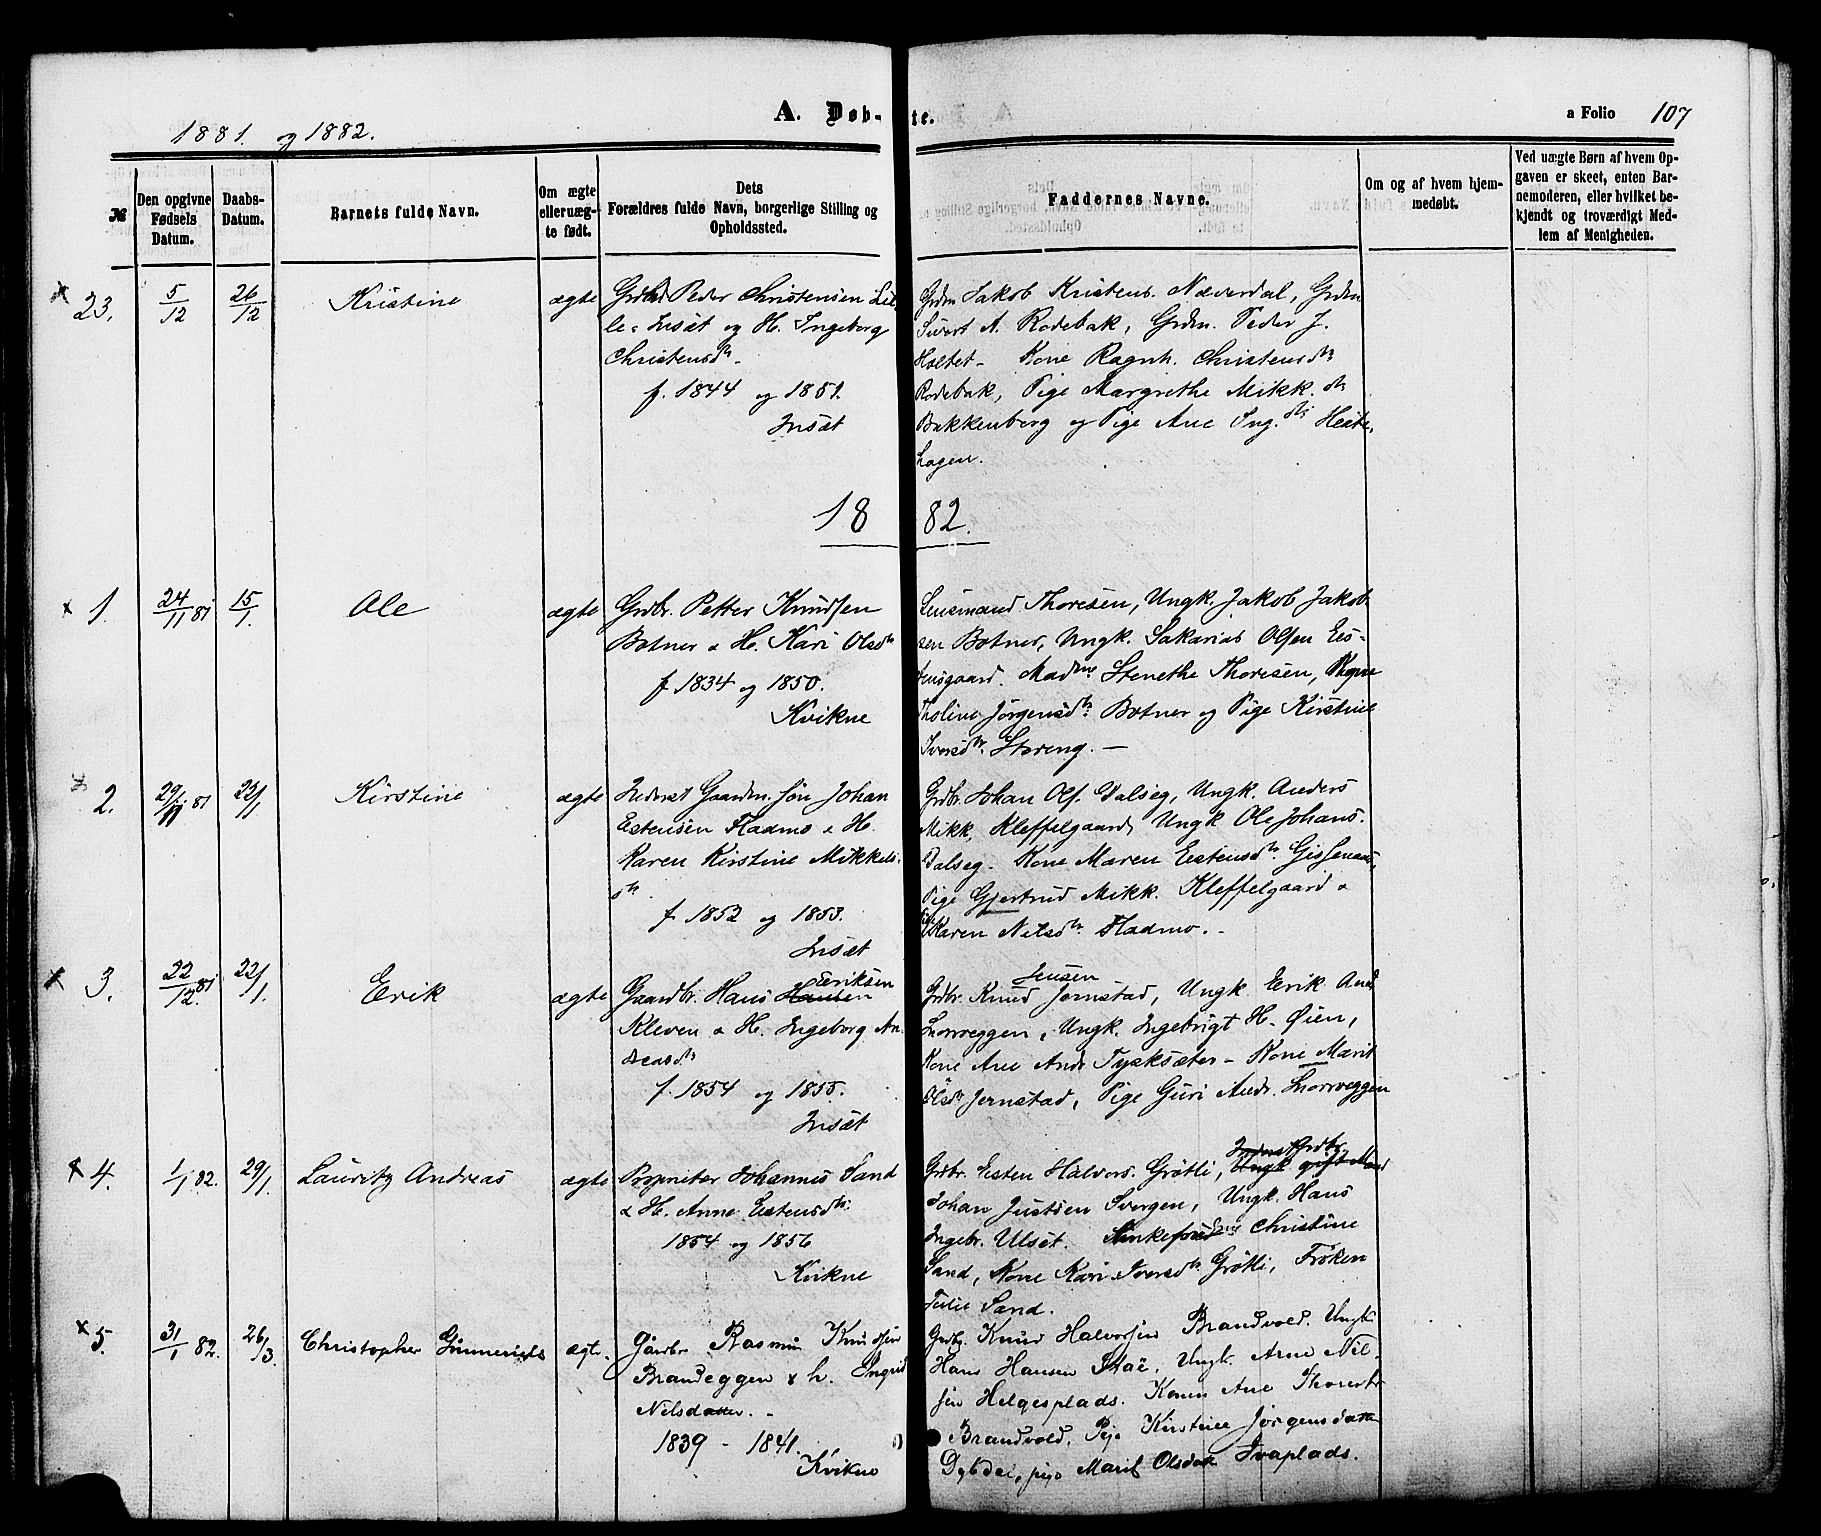 1881. og 1882.
A. Døb-te.
a Folio 107
№
Den opgivne Fødsels Datum.
Daabs-Datum.
Barnets fulde Navn.
Om ægte eller uæg-te født.
Dets Forældres fulde Navn, borgerlige Stilling og Opholdssted.
Faddernes Navne.
Om og af hvem hjem-medøbt.
Ved uægte Børn af hvem Op-gaven er skeet, enten Bar-nemoderen, eller hvilket be-kjendt og troværdigt Med-lem af Menigheden.
23. 5/12 26/12 Kristine ægte
Grdbr Peder Christensen Lil-
le-Insæt og H. Ingeborg
Christensdtr -
f. 1844 og 1851.
Insæt
Grdm Jakob Kristens. Næverdal, Grdm
Sivert A. Rodebak, Grdm. Peder J.
Holtet - Kone Ragnh. Christensdtr
Rodebak, Pige Margrethe Mikk.dtr
Bakkenberg og Pige Ane Ing.dtr Heste-
hagen.
1882.
1. 24/11 81 15/1. Ole ægte
Grdbr. Petter Knudsen
Botner & H. Kari Olsdtr
f 1834 og 1850.
Kvikne
Lensmand Thoresen, Ungk. Jakob Jakob-
sen Botner, Ungk. Sakarias Olsen Ees-
tensgaard. Madme Stenethe Thoresen, Pigen
Tholine Jørgensdtr. Botner og Pige Kirstine
Iversdtr. Støreng. —
2. 29/11 81 22/1 Kirstine ægte
Inderst Gaardm. søn Johan
Estensen Fladmo & H.
Karen Kirstine Mikkels-
dtr
f 1852 og 1853.
Insæt
Grdbr. Johan Ols. Dalseg, Ungk. Anders
Mikk. Kleffelgaard, Ungk Ole Johans.
Dalseg. Kone Maren Eestensdtr. Gissenaas,
Pige Gjertrud Mikk. Kleffelgaard &
Karen Nilsdtr. Fladmo. -
3. 22/12 81 22/1. Erik ægte
Gaardbr. Hans Hansen Eriksen
Kleven & H. Ingeborg An-
dreasdtr
f. 1854 og 1855.
Insæt
Grdbr. Knud Jensen Jernstad, Ungk. Eerik And.
Snorreggen, Ungk. Ingebrigt H. Øien,
Kone Ane Andr Tysksæter - Kone Marit
Olsdtr Jernstad, Pige Guri Andr. Snorreggen
4. 1/1 82. 29/1. Lauritz Andreas ægte
Proprietær Johannes Sand
& H. Anne Estensdtr.
1854 og 1856
Kvikne
Grdbr. Eesten Halvors. Grøtli, Ungk gift Mand Inderst Grdbr.
Johan Justsen Svergen, Ungk. Hans
Ingebr. Ulset. Enkefrue Christine
Sand, Kone Kari Iversdtr. Grøtli, Frøken
Julie Sand.
5. 31/1 82. 26/3. Christopher ægte.
Gårdbr Rasmus Knudsen
Brandeggen & h. Ingrid
Nilsdatter. -
1839 - 1841.
Kvikne
Grdbr. Knud Halvorsen Brandvold. Ungk
Hans Hansen Stai. Ungk. Arne Nil-
sen Helgesplads. Konen Ane Thorsdtr
Brandvold. Pige Kirstine Jørgensdatter
Dybdal, pige Marit Olsdatter Ivaplads.